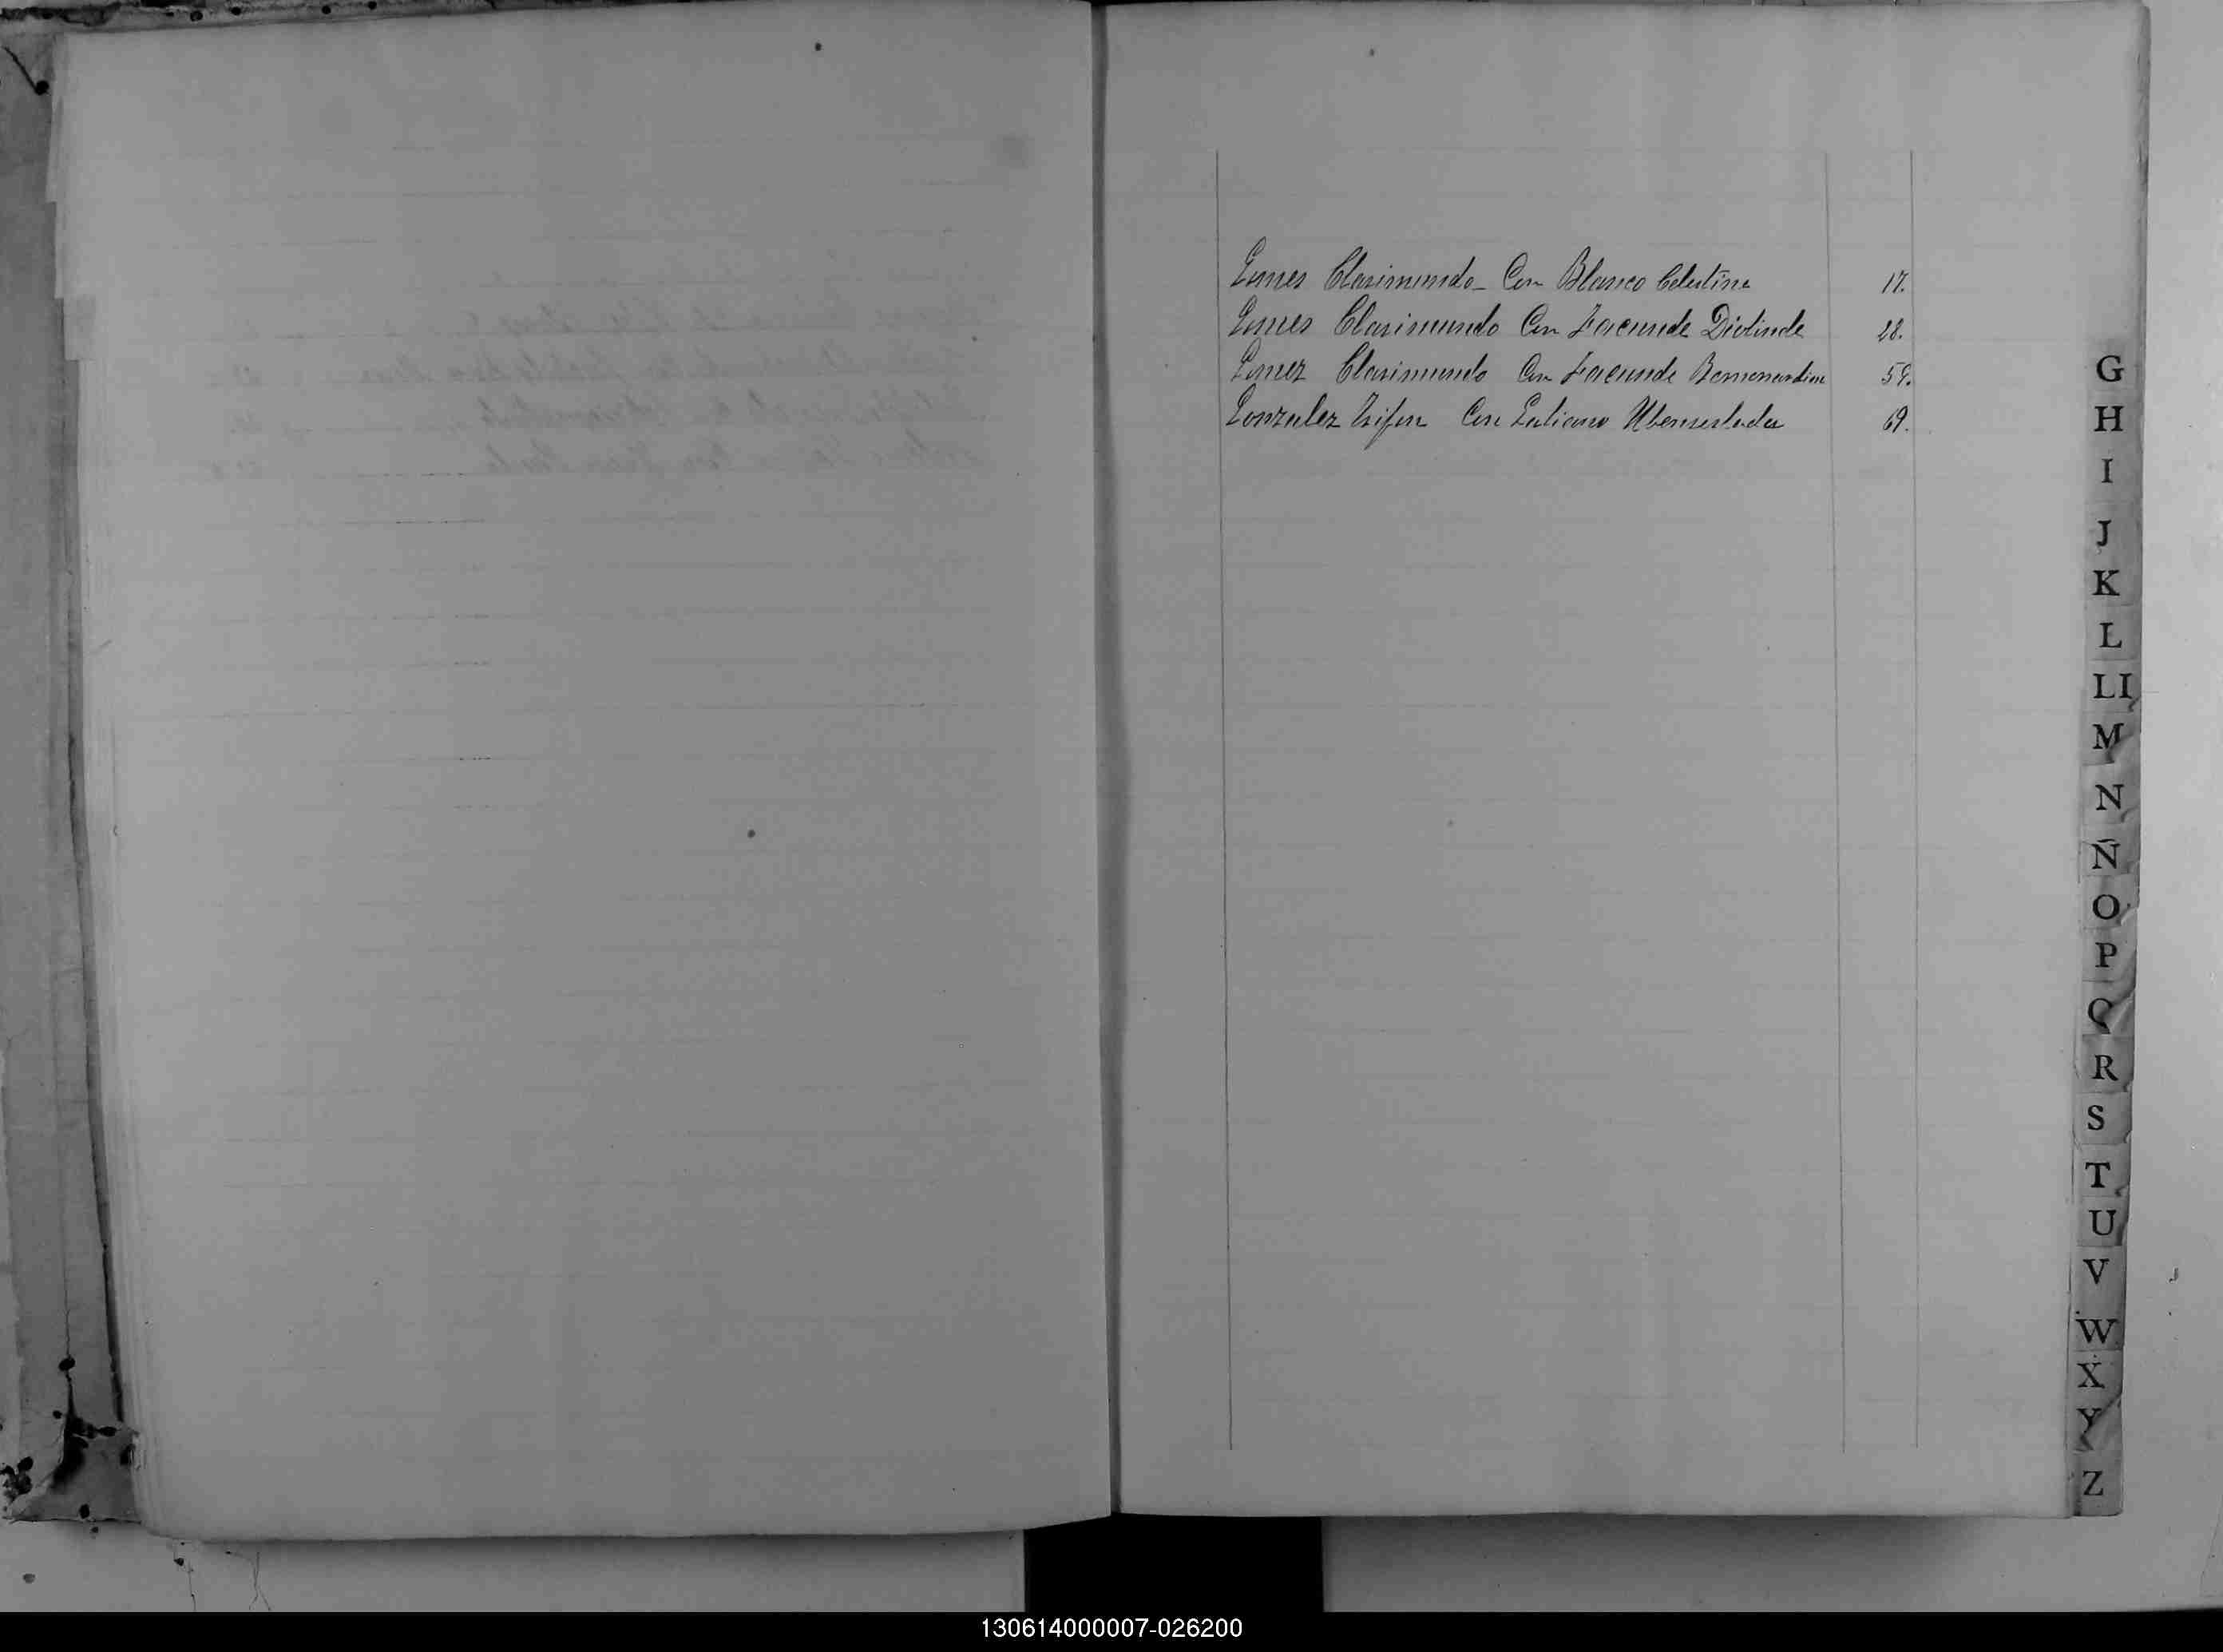 Gomes Clarimundo - Con Blanco Celestina 17.
Gomes Clarimundo Con Facunde Diolinde 28.
Gomez Clarimundo Con Facunde 59.
Gonzalez Trifon Con 69.
G
H
I
J
K
L
Ll
M
N
Ñ
O
P
Q
R
S
T
U
V
W
X
Y
Z
130614000007-026200